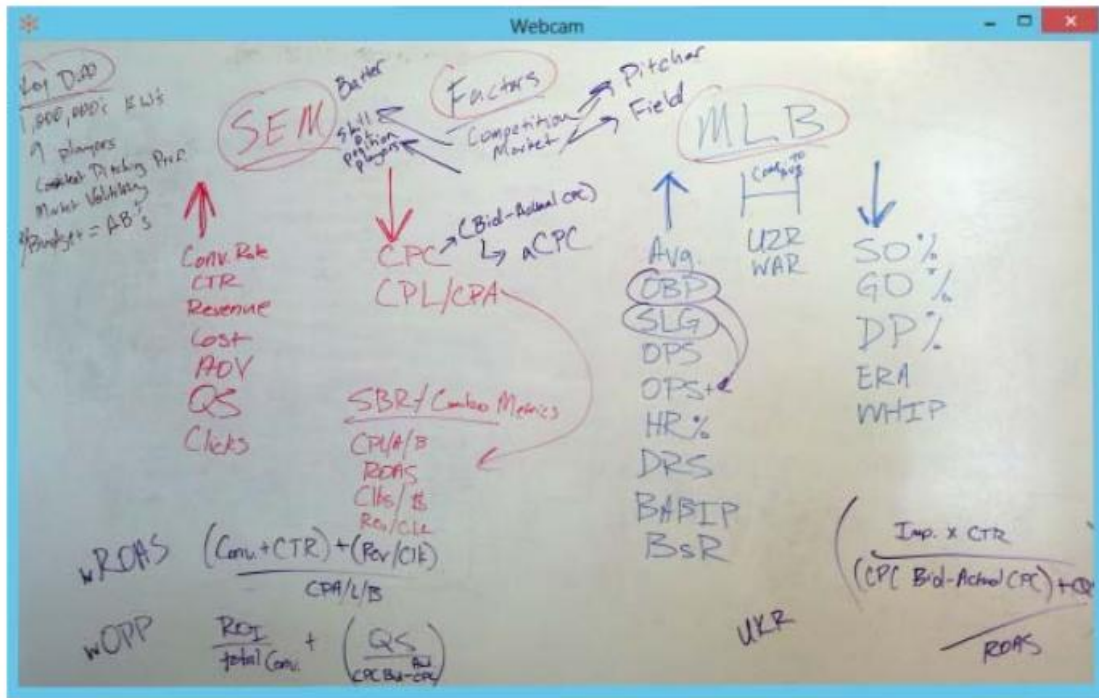 Webcam
1,000,000's KW's
9 players
Market Volatility
Budget = AB's
SEM
Batter
Skill
Position
players
Factors
Competition
Market
Pitcher
Field
MLB
Conv. Rate
CTR
Revenue
Cost
AOV
QS
Clicks
CPC
(Bid-Actual CPC)
aCPC
CPL/CPA
SBR/Combo Metrics
CPL/A/B
ROAS
Clks/B
Rev/Clk
Avg.
OBP
SLG
OPS
OPS+
HR%
DRS
BABIP
BsR
UZR
WAR
SO%
GO%
DP%
ERA
WHIP
wROAS (Conv.+CTR)+(Rev/Clk)
CPA/L/B
wOPP ROI + QS
total Conv. CPC Bid-Act CPC
UKR
Imp. x CTR
(CPC Bid-Actual CPC)+QS
ROAS